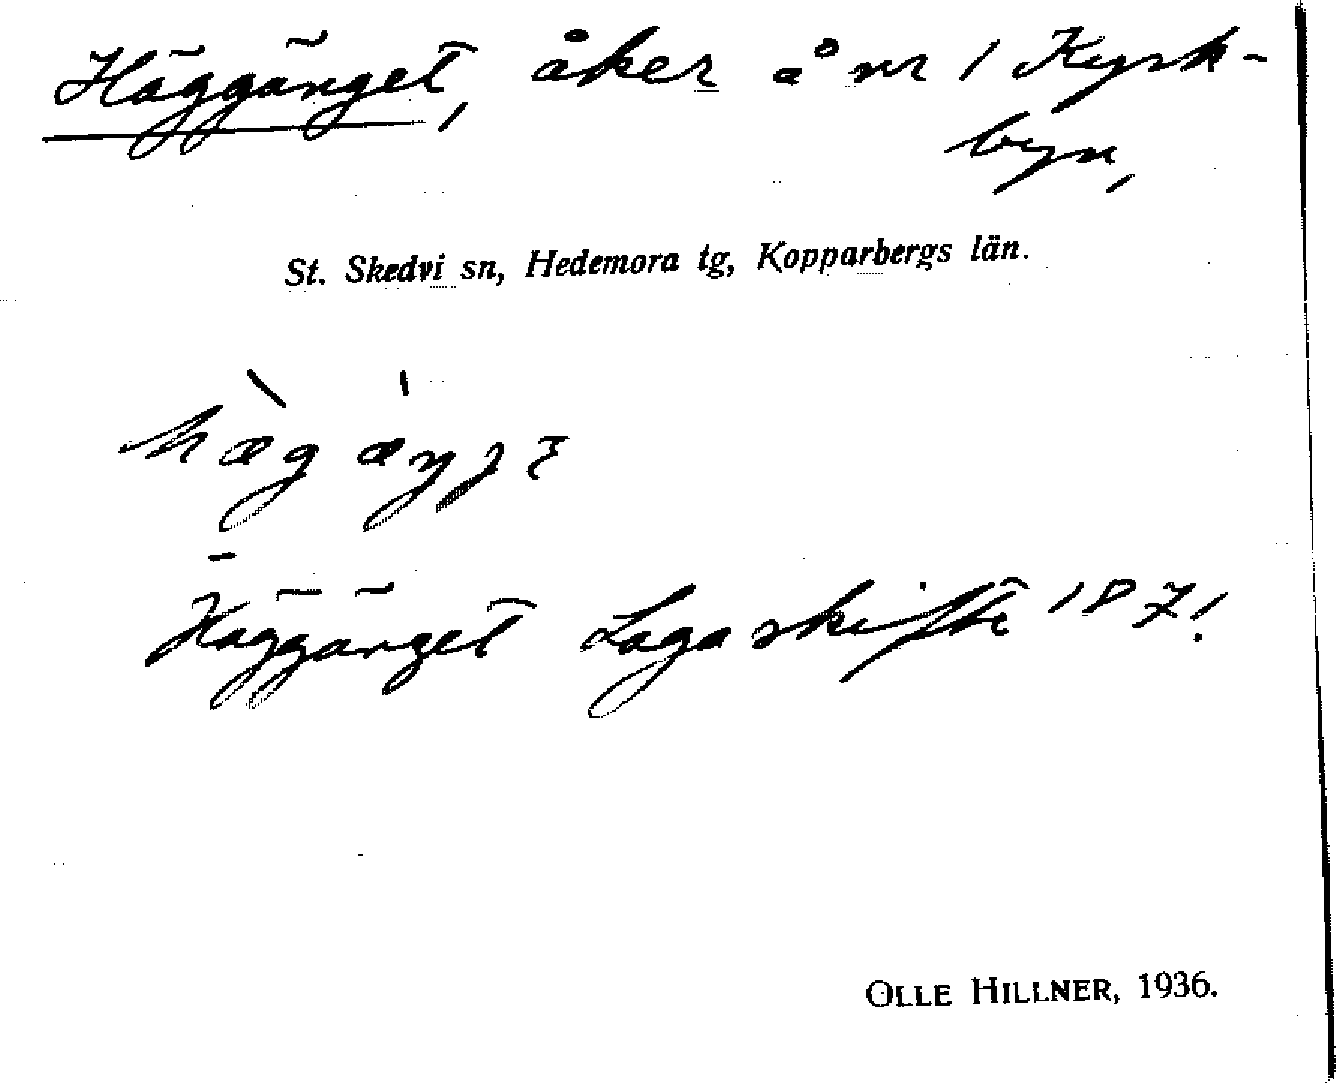 Häggänget, åker å nr 1 Kyrk-
byn,
St. Skedvi sn, Hedemora tg, Kopparbergs län.
Häggänget Laga skifte 1871.
OLLE HILLNER, 1936.